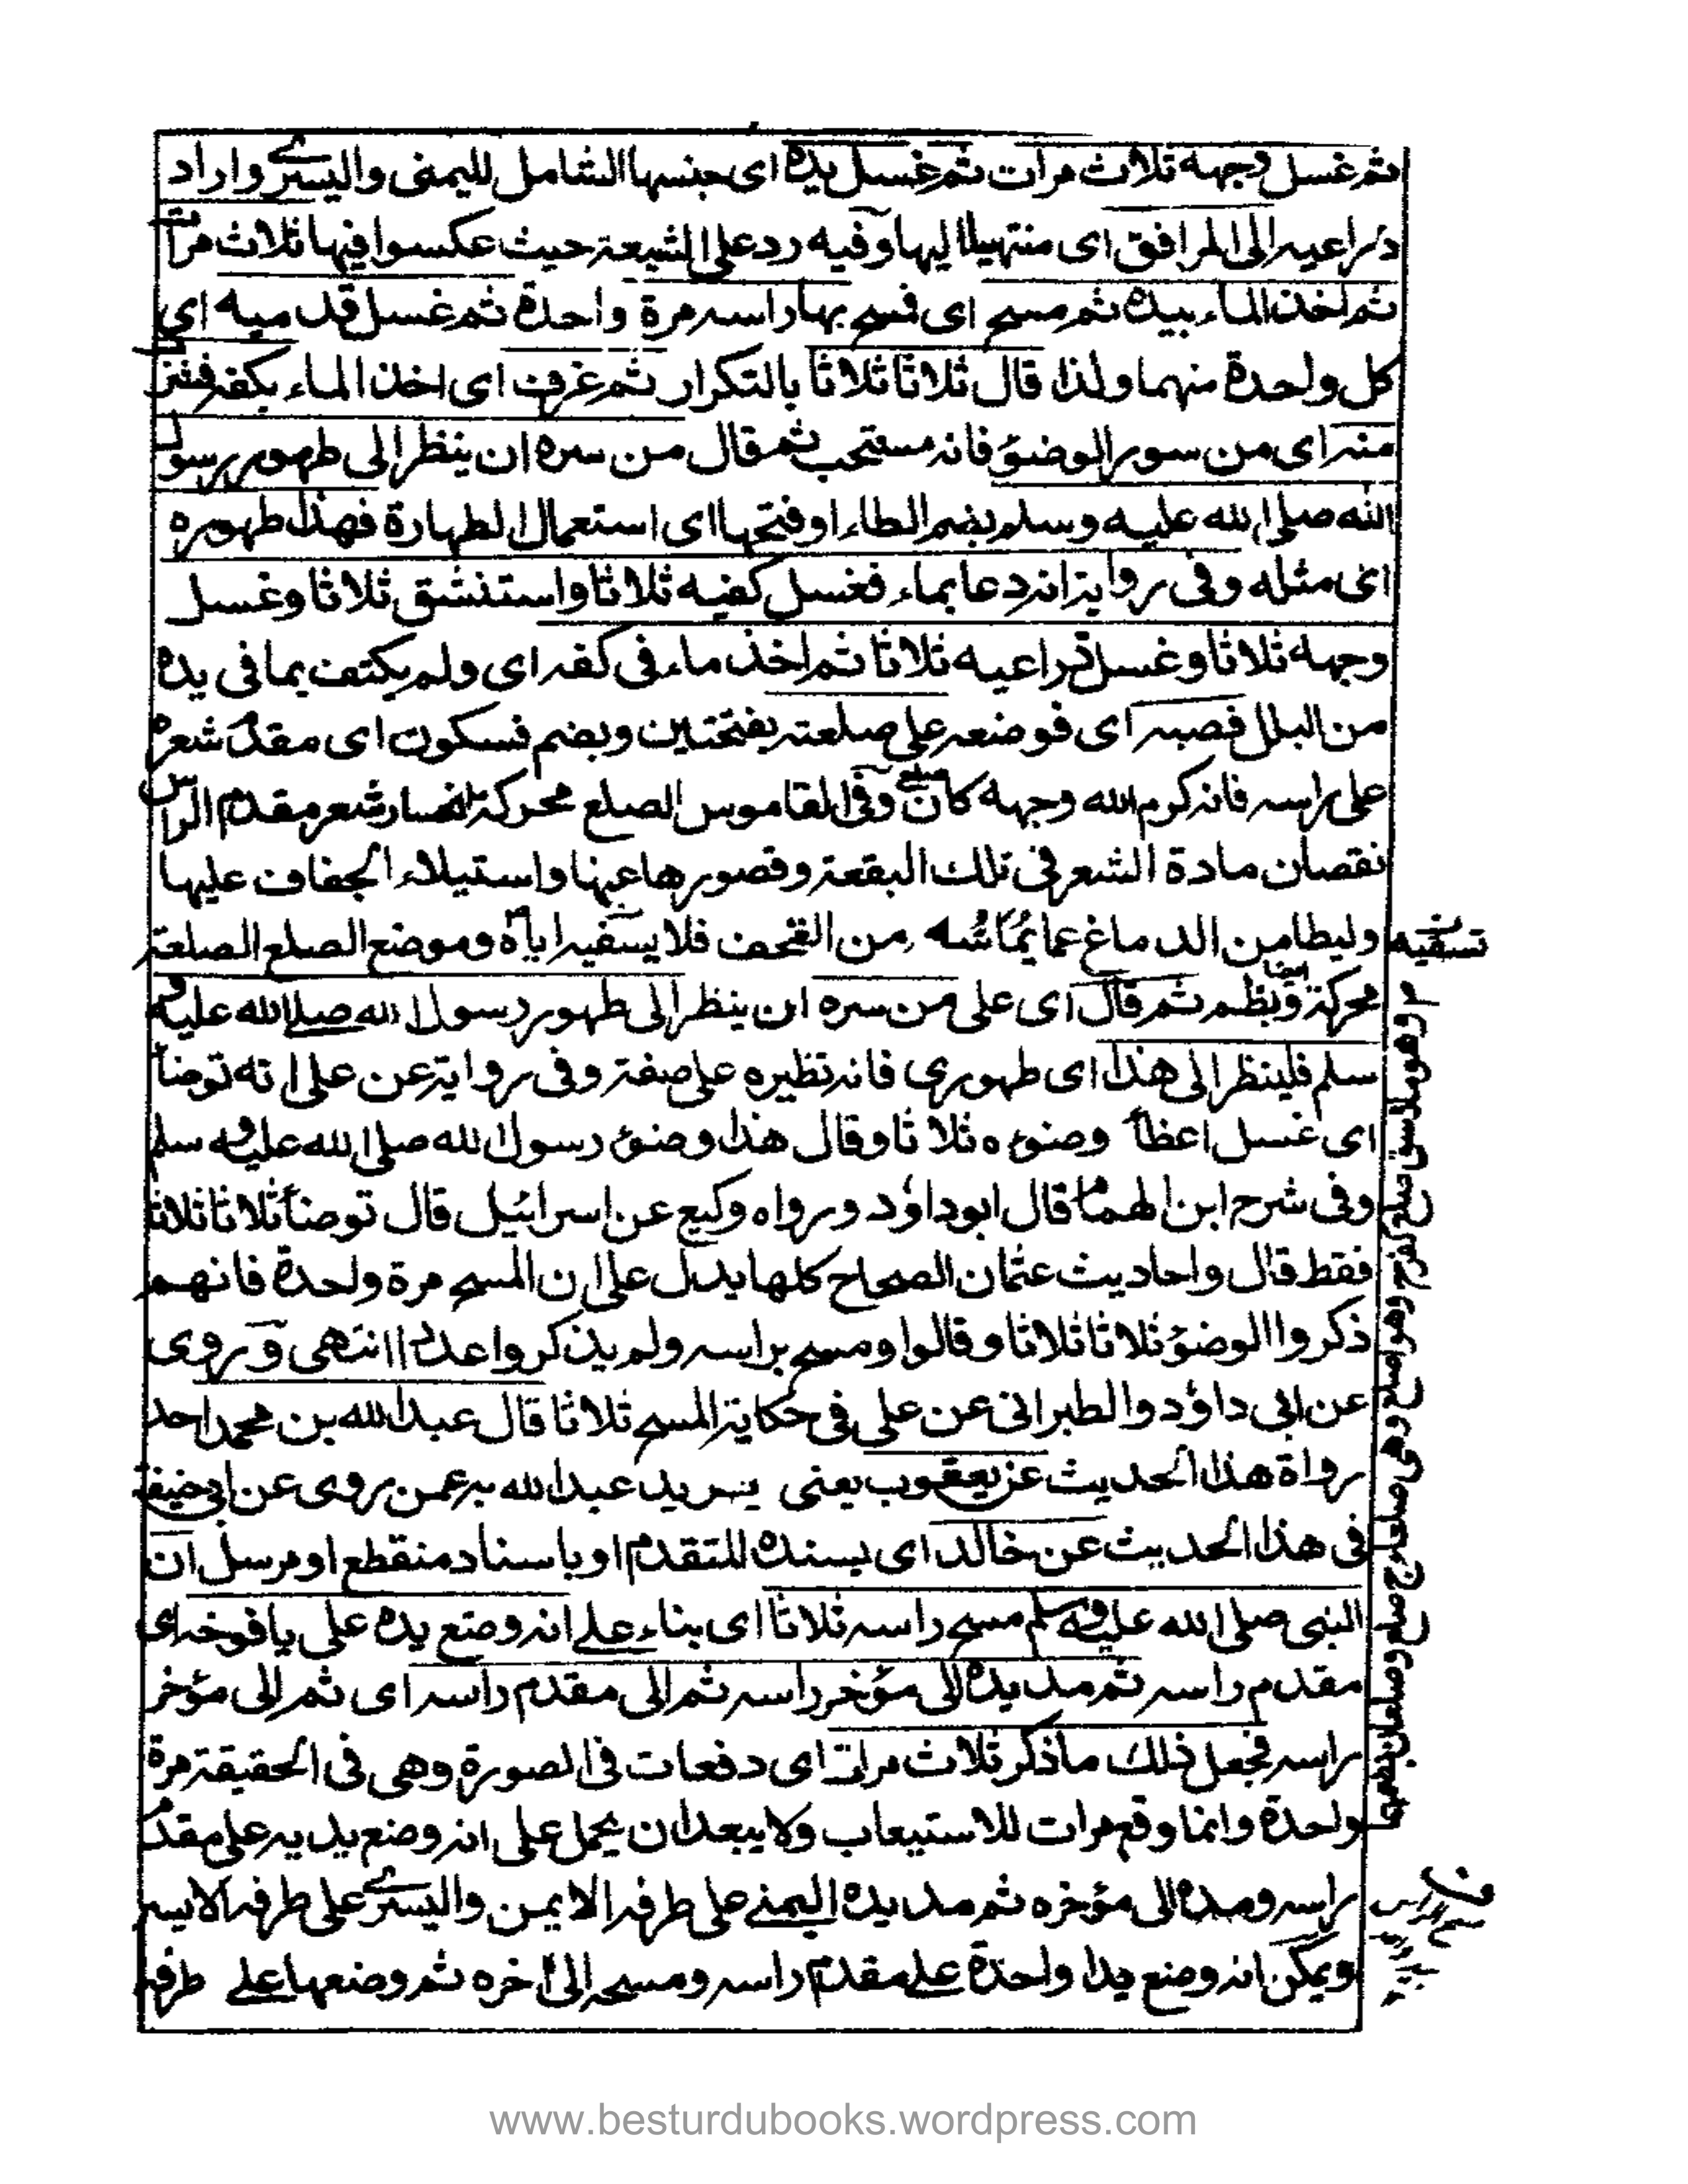 ثم غسل وجهه ثلاث مرات ثم غسل يده اى جنسها الشامل لليمنى واليسرے واراد
ذراعيه الى المرافق اى منتهيا اليها وفيه رد على الشيعة حيث عكسوا فيها ثلاث مرات
ثم اخذ الماء بيده ثم مسح اى فمسح بها راسه مرة واحدة ثم غسل قدميه اي
كل واحدة منهما ولذا قال ثلاثا ثلاثا بالتكرار ثم غرف اى اخذ الماء بكفه فشرب
منه اى من سور الوضوء فانه مستحب ثم قال من سره ان ينظر الى طهور رسول
الله صلى الله عليه وسلم بضم الطاء اوفتحها اى استعمال الطهارة فهذا طهوره
اى مثله وفى رواية انه دعا بماء فغسل كفيه ثلاثا واستنشق ثلاثا وغسل
وجهه ثلاثا وغسل ذراعيه ثلاثا ثم اخذ ماء فى كفه اى ولم يكتف بما فى يده
من البلل فصبه اى فوضعه على صلعته بفتحتين وبضم فسكون اى مقدم شعره
على راسه فانه كرم الله وجهه كان اصلع وفى القاموس الصلع محركة انحسار شعر مقدم الراس
نقصان مادة الشعر فى تلك البقعة وقصورها عنها واستيلاء الجفاف عليها
وليطامن الدماغ عما يماسه من القحف فلا يسقيه اياه وموضع الصلع الصلعة
محركة وبضم ايضا ثم قال اى على من سره ان ينظر الى طهور رسول الله صلے الله عليه و
سلم فلينظر الى هذا اى طهورى فانه نظيره على صفته وفى رواية عن على انه توضأ
اى غسل اعضاء وضوءه ثلاثا وقال هذا وضوء رسول الله صلى الله عليه و سلم
وفى شرح ابن الهمام قال ابو داود ورواه وكيع عن اسرائيل قال توضأ ثلاثا ثلاثا
فقط قال واحاديث عثمان الصحاح كلها يدل على ان المسح مرة واحدة فانهم
ذكروا الوضوء ثلاثا ثلاثا وقالوا ومسح براسه ولم يذكروا عددا انتهى وروى
عن ابى داؤد والطبرانى عن على فى حكاية المسح ثلاثا قال عبد الله بن محمد احد
رواة هذا الحديث عن يعقوب يعنى يريد عبد الله بر عمن روى عن ابى حنيفة
فى هذا الحديث عن خالد اى بسنده المتقدم او باسناد منقطع او مرسل ان
النبى صلى الله عليه وسلم مسح راسه ثلاثا اى بناء علے انه وضع يده على يافوخه اى
مقدم راسه ثم مد يده الى مؤخر راسه ثم الى مقدم راسه اى ثم الى مؤخر
راسه فجعل ذلك ماذكر ثلاث مرات اى دفعات فى الصورة وهى فى الحقيقة مرة
واحدة وانما وقع مرات للاستيعاب ولا يبعد ان يحمل على انه وضع يديه على مقدم
راسه ومده الى مؤخره ثم مد يده اليمنے على طرفه الايمن واليسرے على طرفه الايسر
ويمكن انه وضع يدا واحدة علے مقدم راسه ومسحه الى اخره ثم وضعها علے طرفه
تسقيه
www.besturdubooks.wordpress.com